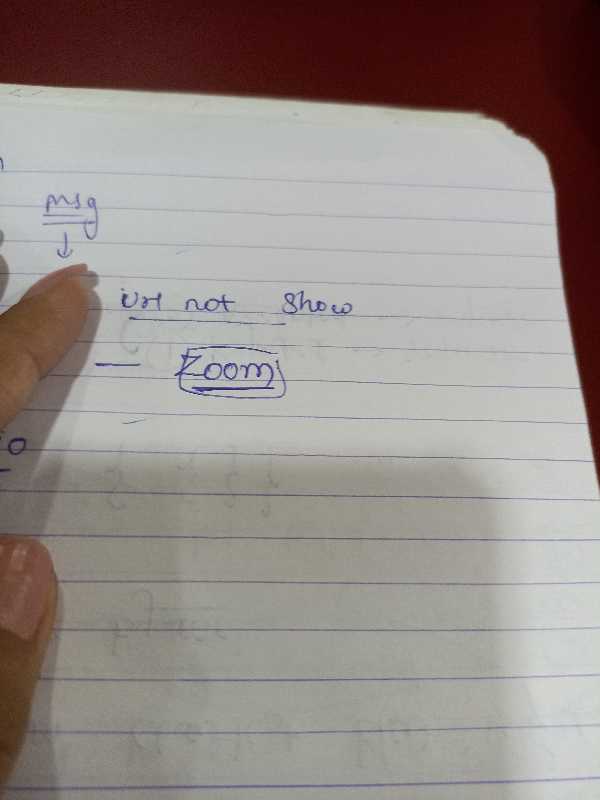 msg
↓
Url not show
— Zoom